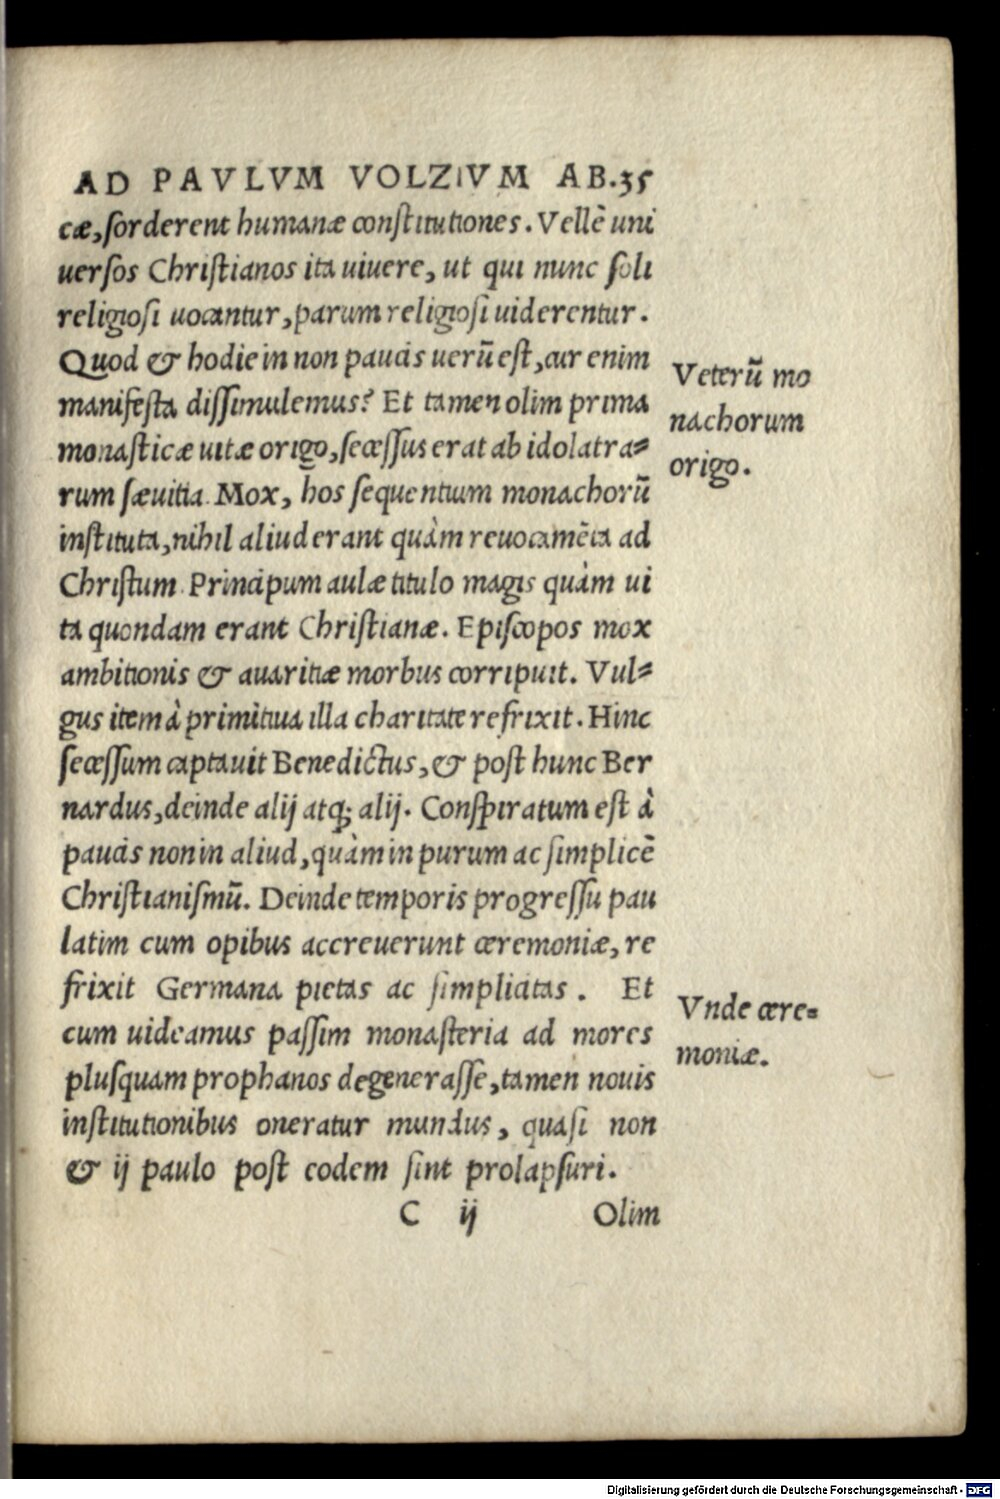 AD PAVLVM VOLZIVM AB.35
cæ, ſorderent humanæ conſtitutiones. Vellē uni
uerſos Chriſtianos ita uiuere, ut qui nunc ſoli
religioſi uocantur, parum religioſi uiderentur.
Quod & hodie in non paucis uerū eſt, cur enim
manifeſta diſſimulemus? Et tamen olim prima
monaſticæ uitæ origo, ſeceſſus erat ab idolatra⸗
rum ſæuitia. Mox, hos ſequentium monachorū
inſtituta, nihil aliud erant quàm reuocamēta ad
Chriſtum. Principum aulæ titulo magis quàm ui
ta quondam erant Chriſtianæ. Epiſcopos mox
ambitionis & auaritiæ morbus corripuit. Vul⸗
gus item à primitiua illa charitate refrixit. Hinc
ſeceſſum captauit Benedictus, & poſt hunc Ber
nardus, deinde alij atq; alij. Conſpiratum eſt à
paucis non in aliud, quàm in purum ac ſimplicē
Chriſtianiſmū. Deinde temporis progreſſu pau
latim cum opibus accreuerunt ceremoniæ, re
frixit Germana pietas ac ſimplicitas. Et
cum uideamus paſſim monaſteria ad mores
pluſquam prophanos degeneraſſe, tamen nouis
inſtitutionibus oneratur mundus, quaſi non
& ij paulo poſt eodem ſint prolapſuri.
C ij Olim
Veterū mo
nachorum
origo.
Vnde cere⸗
moniæ.
Digitalisierung gefördert durch die Deutsche Forschungsgemeinschaft - DFG